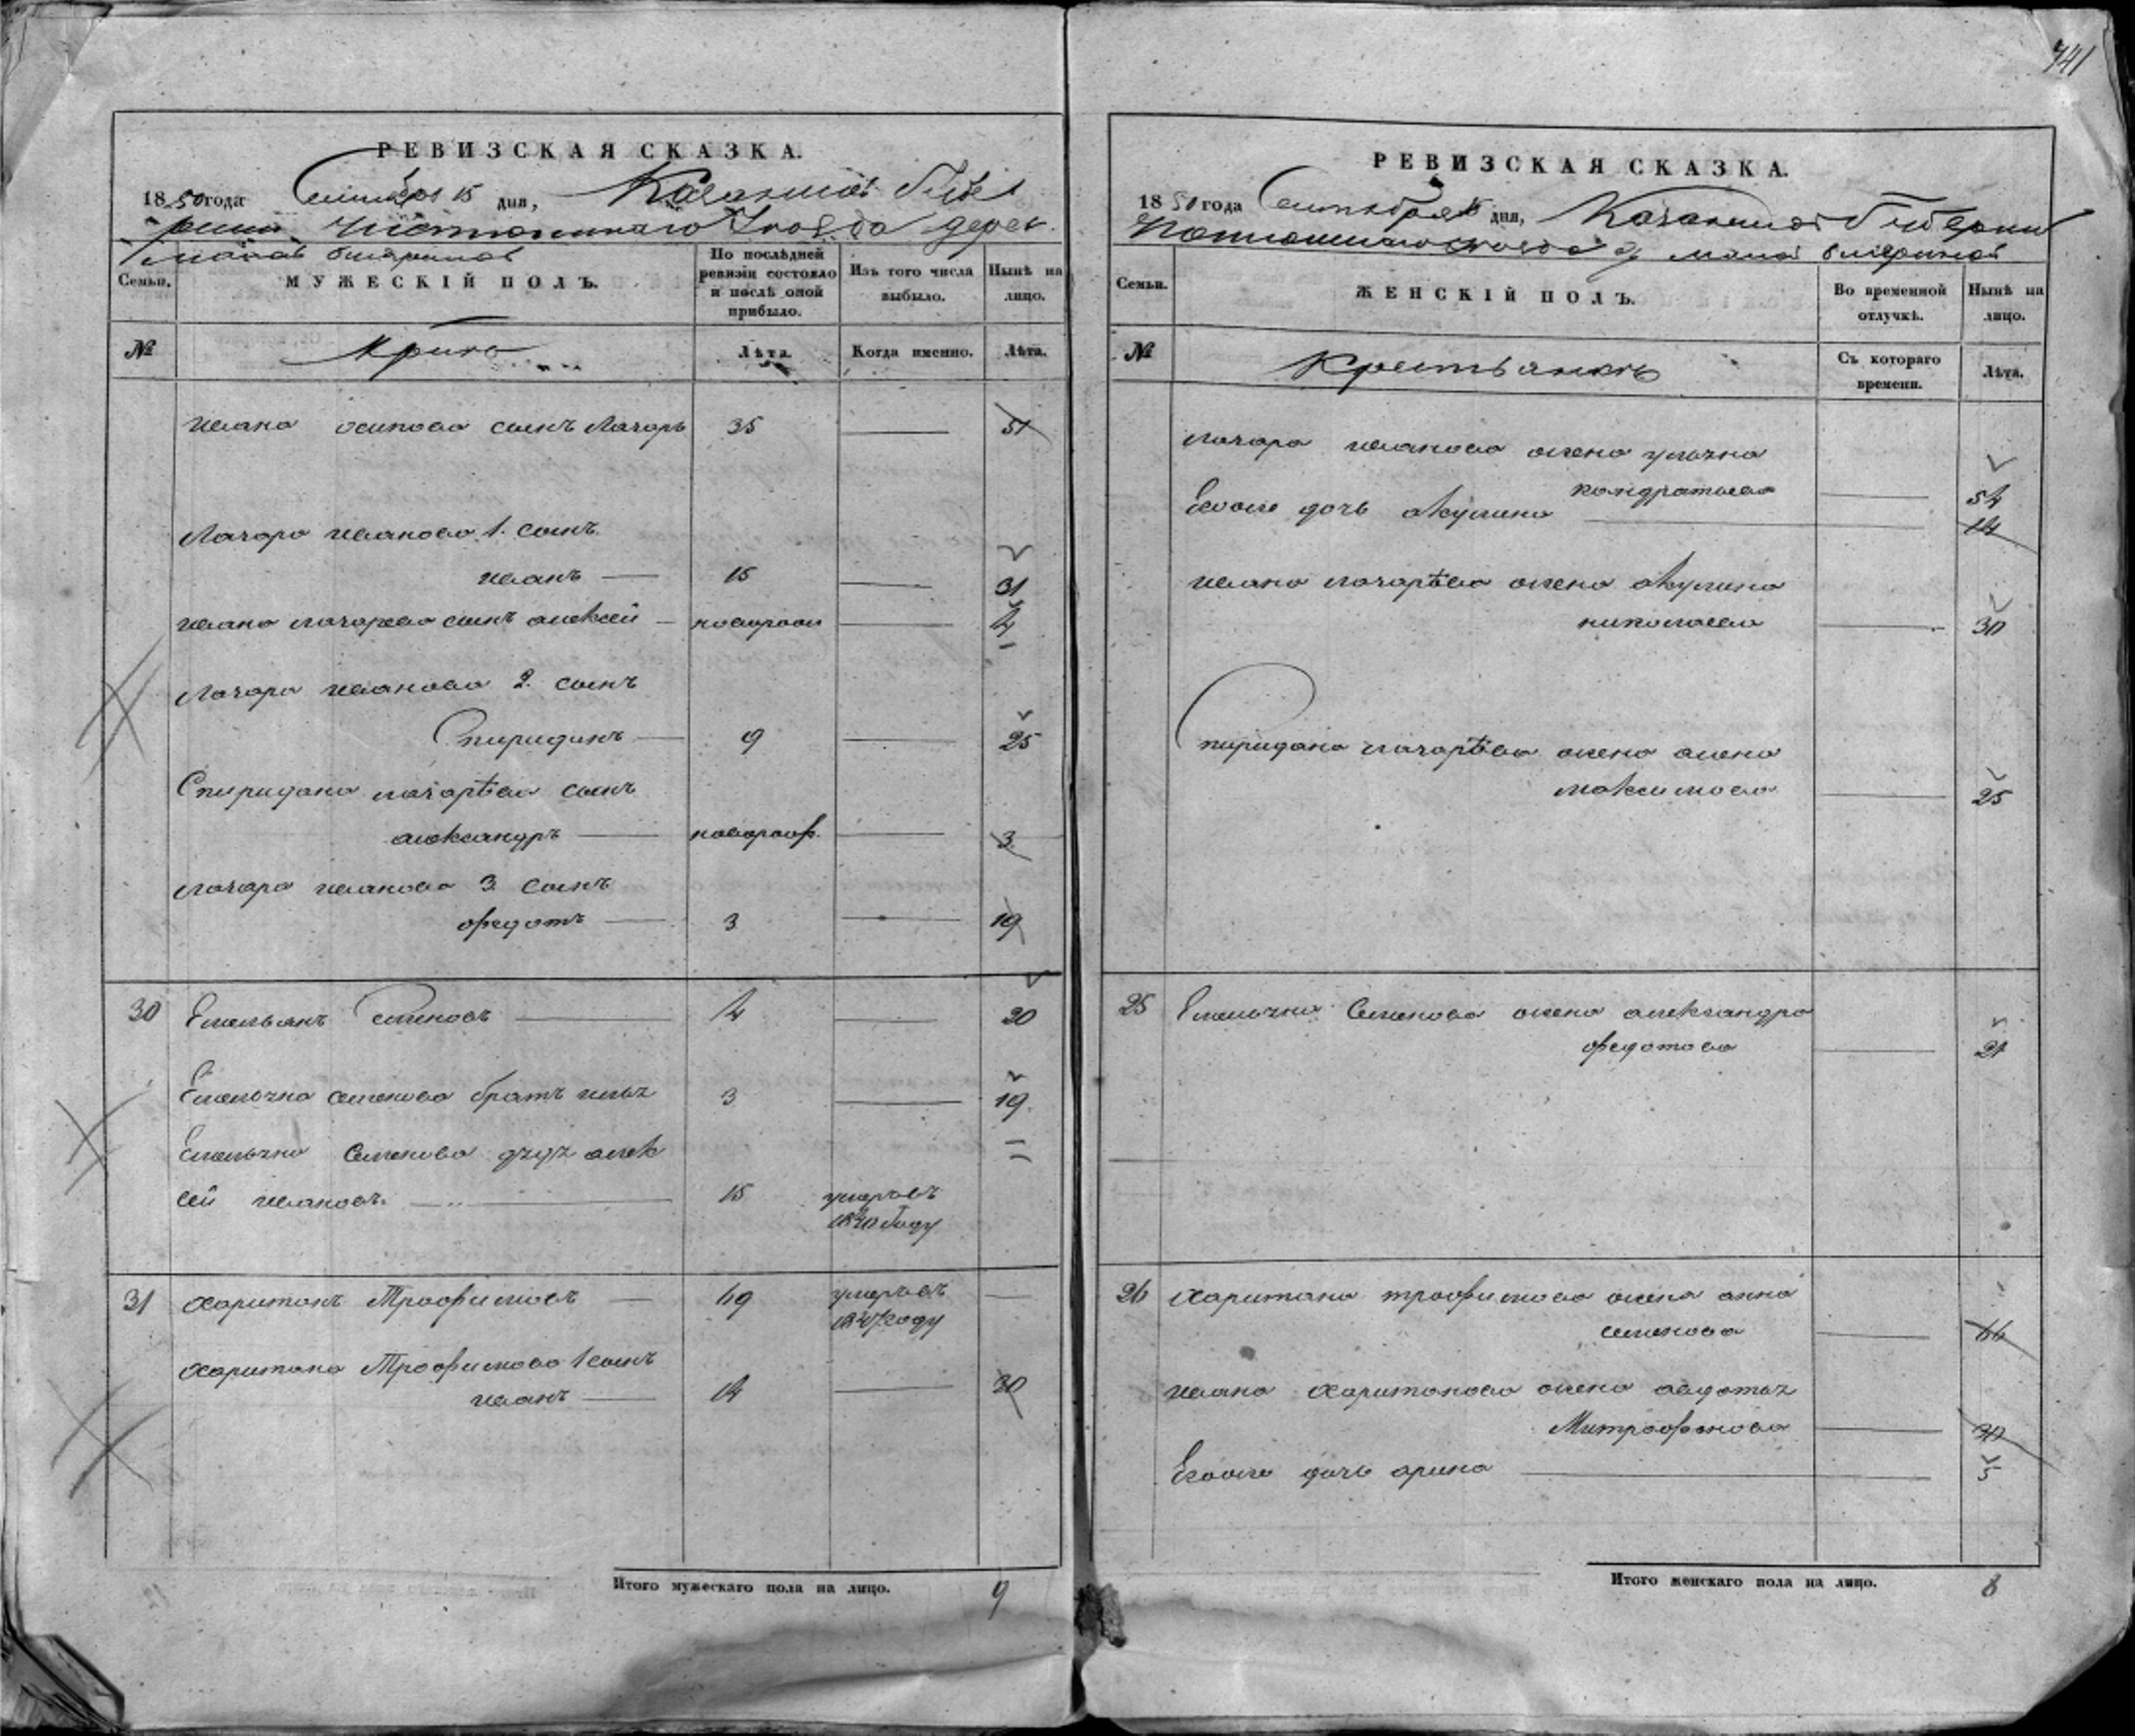 741
РЕВИЗСКАЯ СКАЗКА.
1850 года Сентября 15 дня, Казанской Губе
рнии Чистопольского Уезда дерев.
малой бисяриной
Семьи. МУЖЕСКІЙ ПОЛЪ. По послѣдней ревизіи состояло и послѣ оной прибыло. Изъ того числа выбыло. Нынѣ на лицо.
№ Лѣта. Когда именно. Лѣта.
ивана осипова сынъ Лазарь 35 — 51
Лазаря иванова 1. сынъ
иванъ — 15 — 31
ивана лазарева сынъ алексей — новорож — 4
Лазаря иванова 2. сынъ
Спиридонъ — 9 — 25
Спиридона лазарѣва сынъ
александръ — новорож. — 3
лазаря иванова 3 сынъ
федотъ — 3 — 19
30 Емельянъ Семеновъ — 4 — 20
Емельяна семенова братъ илья 3 — 19.
Емельяна Семенова дядя алек
сей ивановъ — 15 умеръ въ
1840 году
31 харитонъ Трофимовъ — 49 умеръ въ —
1847 году
харитона Трофимова 1 сынъ
иванъ — 14 — 30
Итого мужескаго пола на лицо. 9
РЕВИЗСКАЯ СКАЗКА.
1850 года Сентября 15 дня, Казанской Губернии
уезда д. малой бисяриной
Семьи. ЖЕНСКІЙ ПОЛЪ. Во временной отлучкѣ. Нынѣ на лицо.
№ Крестьянкъ Съ котораго времени. Лѣта.
лазаря иванова жена ульяна
кондратьева — 54
Евоже дочь акулина — 14
ивана лазарѣва жена акулина
николаева — 30
Спиридона лазарѣва жена алена
максимова — 25
25 Емельяна Семенова жена александра
федотова — 21
26 харитона трофимова жена анна
семенова — 66
ивана харитонова жена авдотья
Митрофанова — 30
Евоже дочь арина — 5
Итого женскаго пола на лицо. 8